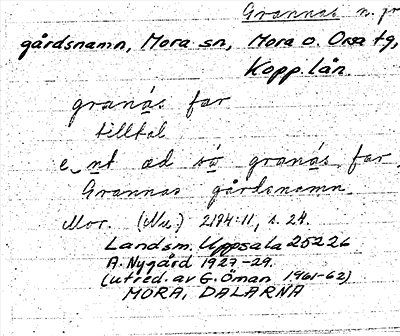 Grannas n. pr
gårdsnamn, Mora sn, Mora o. Orsa tg,
Kopp. län
granás far
tilltal
e nt æd só granás far
Grannas gårdsnamn.
Mor. (Nu.) 2194:11, s. 24.
Landsm. Uppsala 25226
A. Nygård 1927-29.
(utred. av G. Öman 1961-62)
MORA, DALARNA